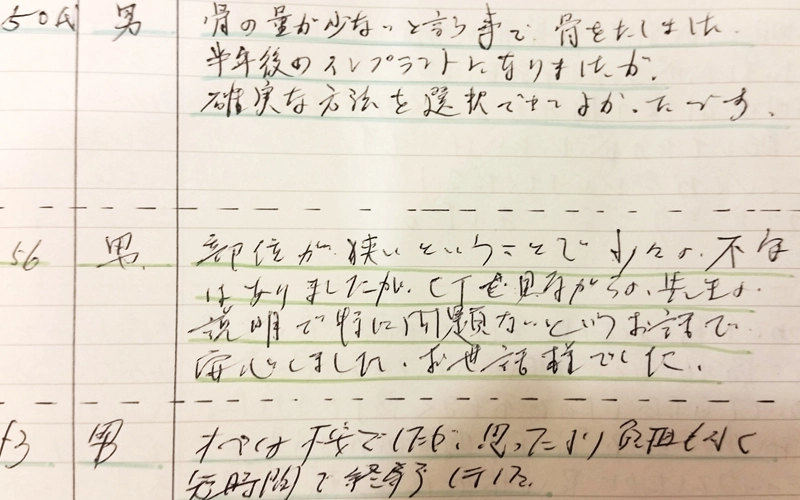 50代 男 骨の量が少ないと言う事で、骨をたしました。
半年後のインプラントになりましたが、
確実な方法を選択できてよかったです。
56 男 部位が狭いということで少々の不安
はありましたが、CTを見ながらの先生の
説明で特に問題ないというお話で
安心しました。お世話様でした。
男 オペは不安でしたが、思ったより負担も少く
短時間で終了しました。